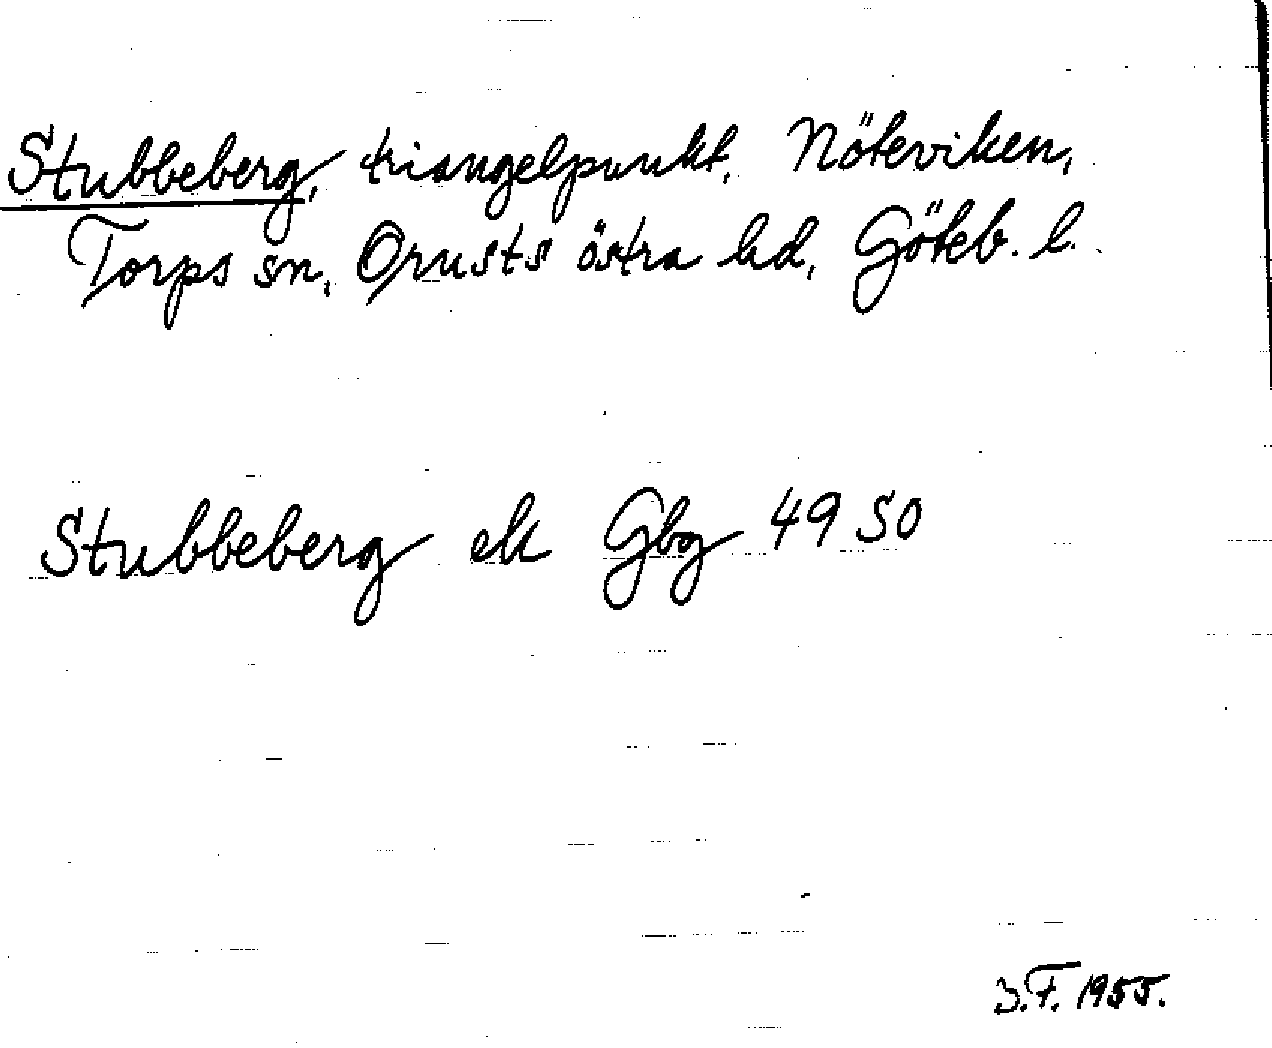 Stubbeberg, triangelpunkt, Nöteviken,
Torps sn, Orusts östra hd, Göteb. l.
Stubbeberg ek Gbg 49 SO
D.F. 1955.